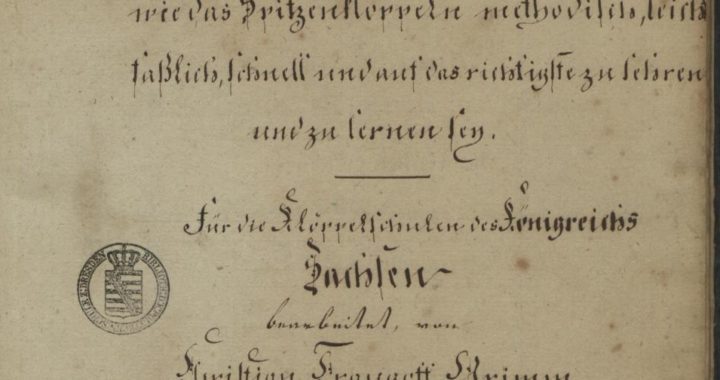 wie das Spitzenklöppeln methodisch, leicht
faßlich, schnell und auf das richtigste zu lehren
und zu lernen sey.
Für die Klöppelschulen des Königreichs
Sachsen
bearbeitet, von
Christian Traugott